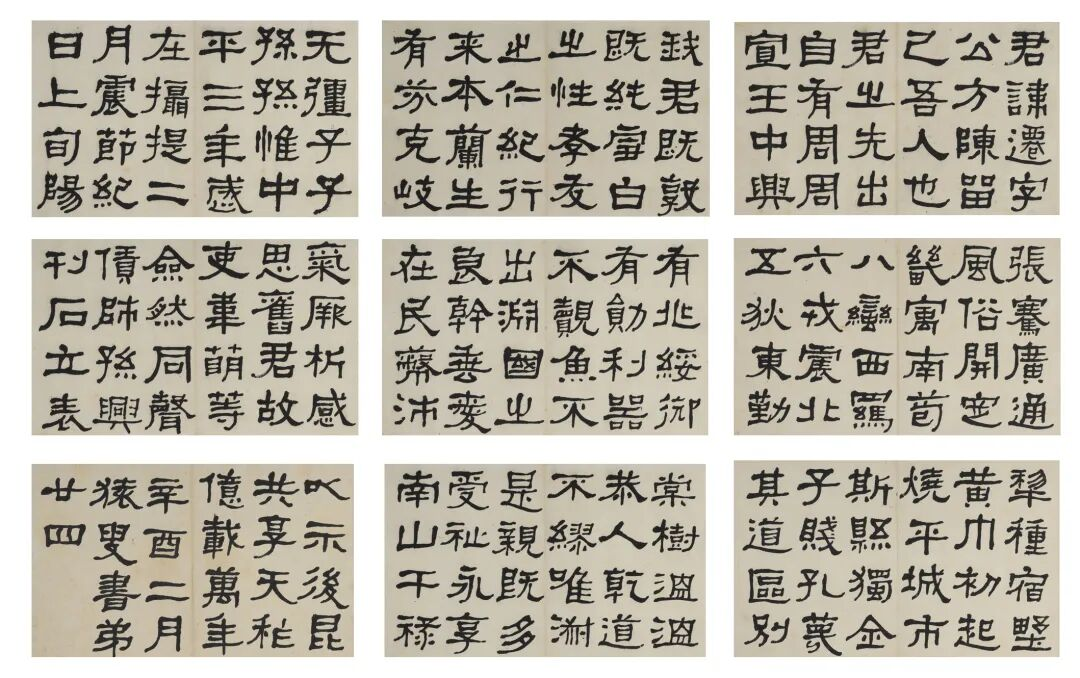 君諱遷字
公方陳留
己吾人也
君之先出
自有周周
宣王中興
我君既敦
既純雪白
之性孝友
之仁紀行
来本蘭生
有芬克岐
无彊子子
孫孫惟中
平三年歲
在攝提二
月震節紀
日上旬陽
張騫廣通
風俗開定
畿寓南苞
八蠻西羈
六戎震北
五狄東勤
有兆綏御
有勛利器
不覿魚不
出淵國之
良幹垂愛
在民蔽沛
氣厥析感
思舊君故
吏韋萌等
僉然同聲
賃師孫興
刊石立表
犁種宿野
黃巾初起
燒平城市
斯縣獨全
子賤孔蔑
其道區別
棠樹溫溫
恭人乾道
不繆唯淑
是親既多
受祉永享
南山干祿
以示後昆
共享天秨
億載萬年
辛酉二月
猿叟書弟
廿四